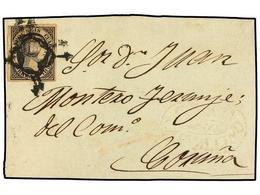 Sor Dn Juan
Montero Feranje;
del Como
Coruña